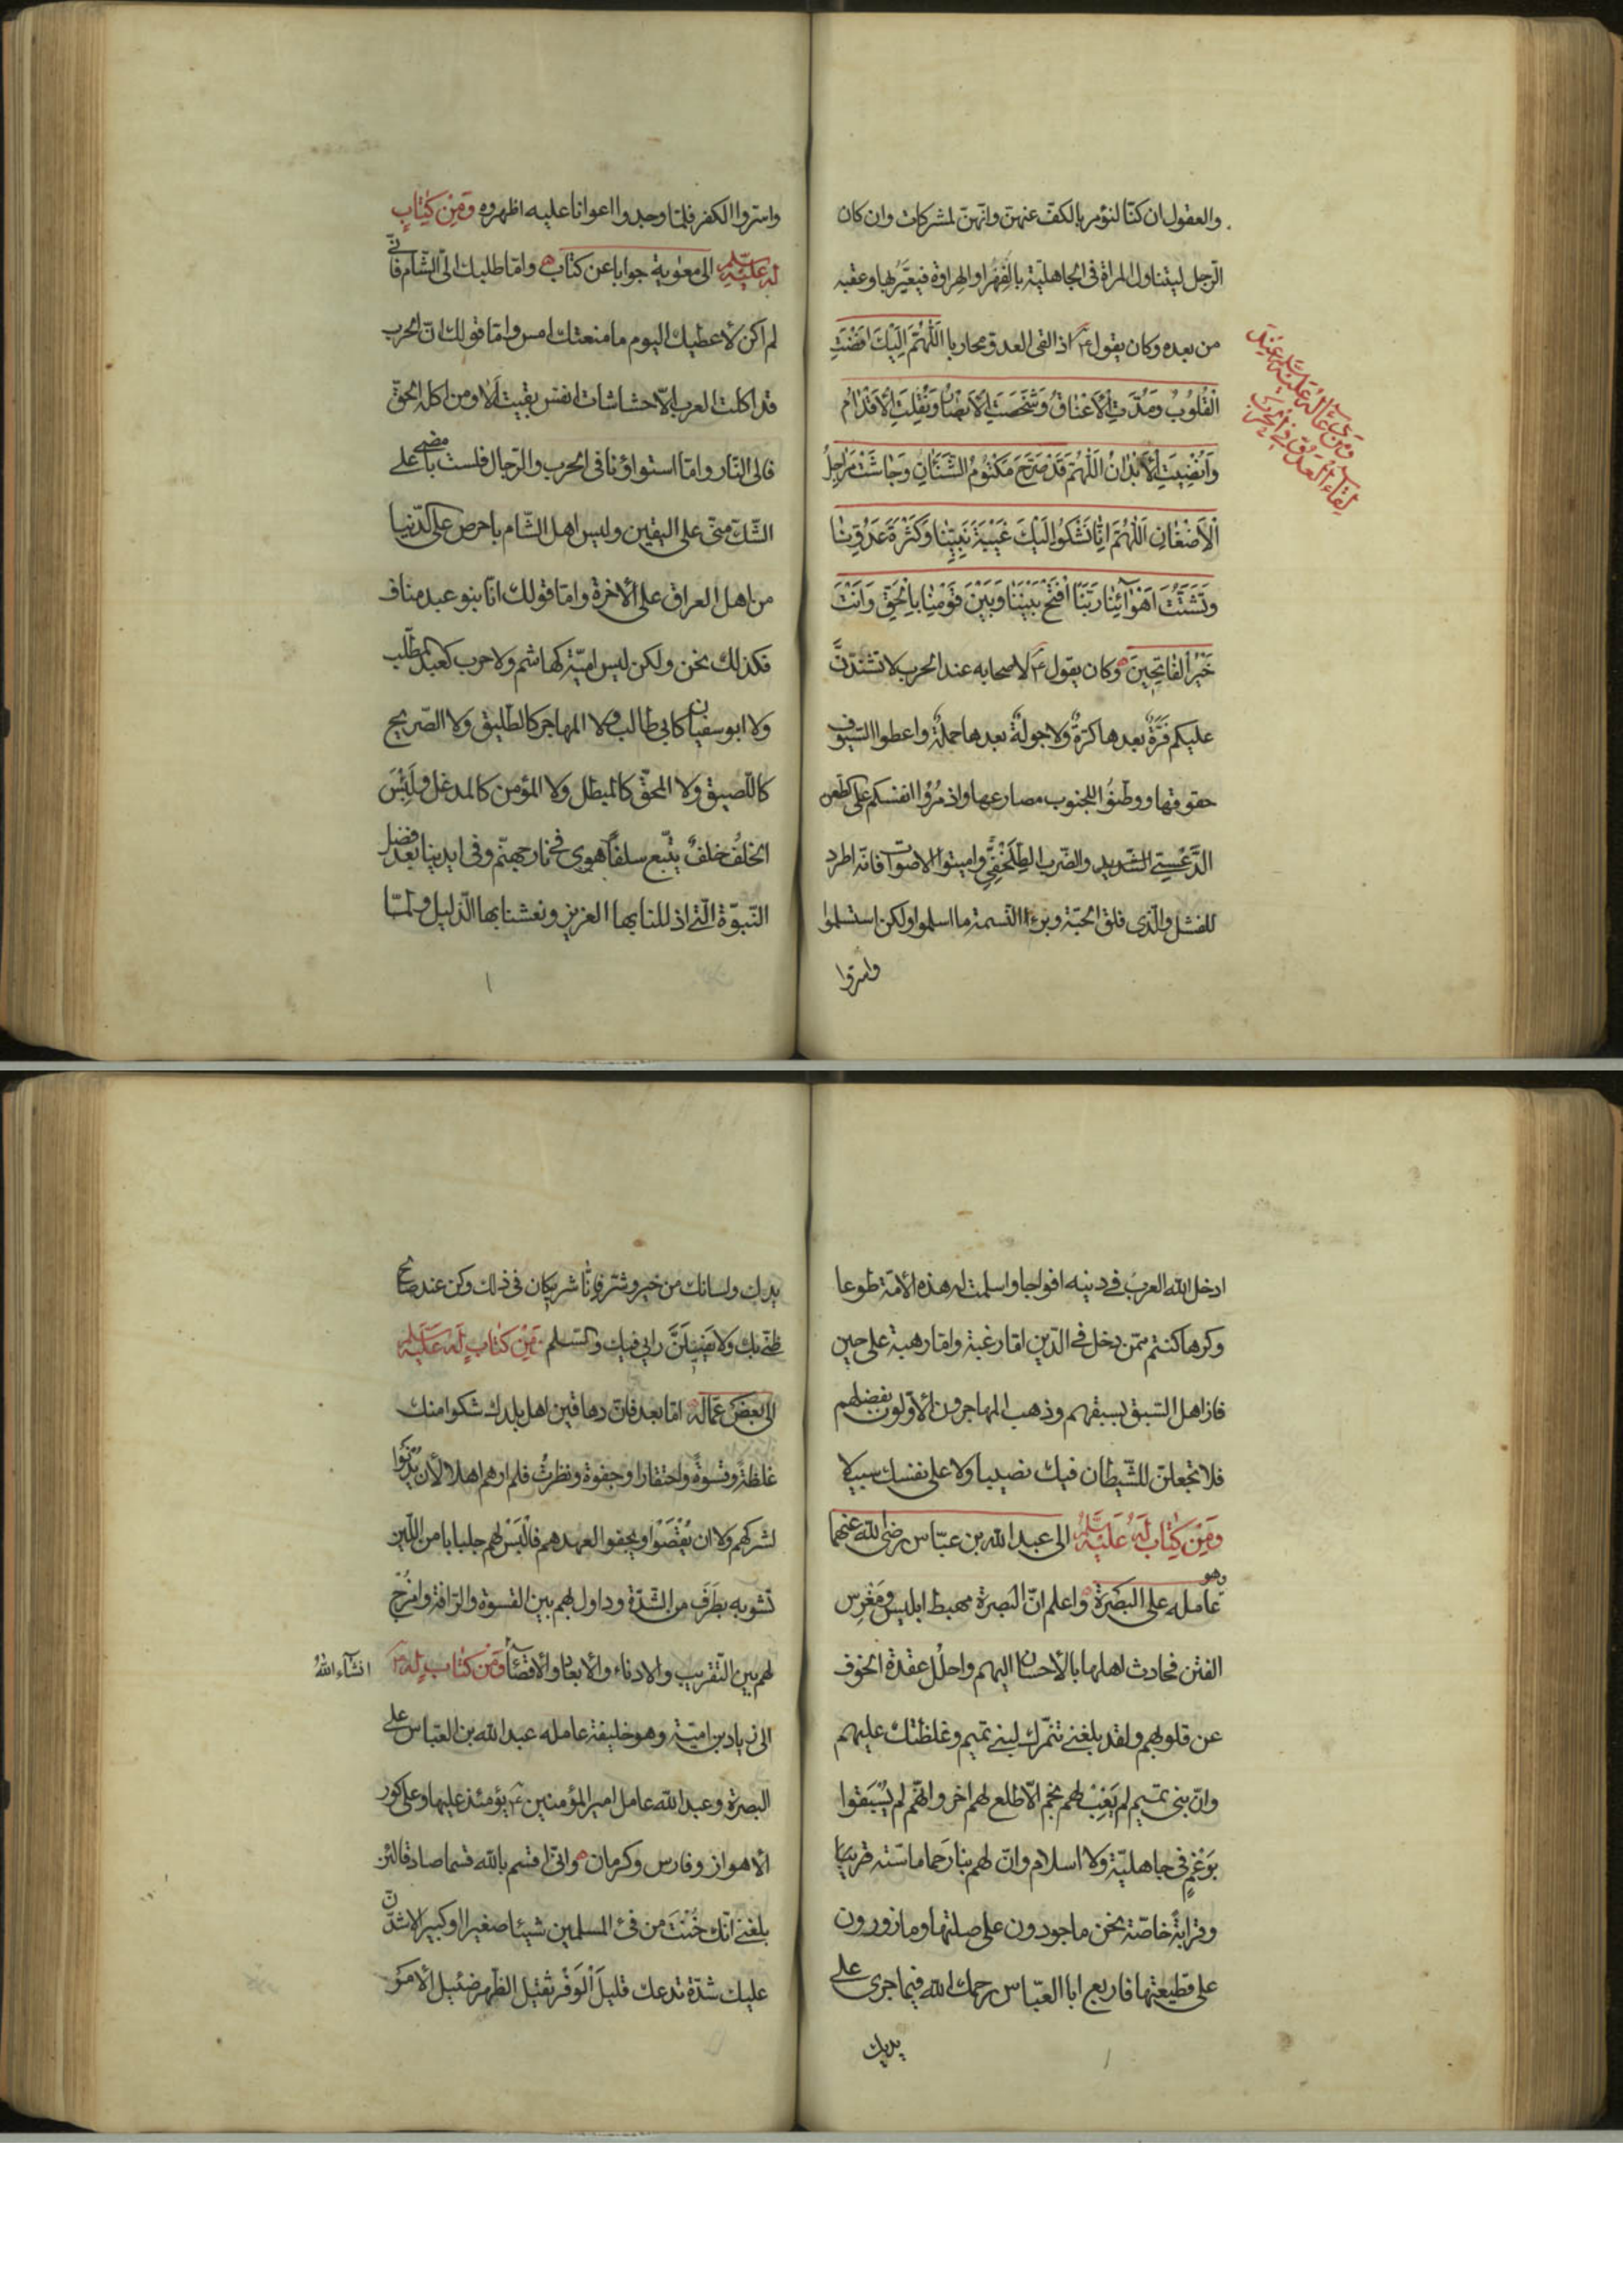 والعقول ان كنّا لنؤمر بالكفّ عنهنّ وانّهنّ لمشركات وان كان
الرّجل ليتناول المراة فى الجاهليّة بالفِهْرِ او الهِراوة فيعيَّرُ بها وعقبه
من بعده وكان يقول ع اذا لقى العدوّ محاربا اَللّٰهُمَّ اِلَيْكَ اَفْضَتِ
الْقُلُوبُ وَمُدَّتِ الْاَعْنَاقُ وَشَخَصَتِ الْاَبْصَارُ وَنُقِلَتِ الْاَقْدَامُ
وَاُنْضِيَتِ الْاَبْدَانُ اَللّٰهُمَّ قَدْ صَرَّحَ مَكْتُومُ الشَّنَآنِ وَجَاشَتْ مَرَاجِلُ
الْاَضْغَانِ اَللّٰهُمَّ اِنَّا نَشْكُوا اِلَيْكَ غَيْبَةَ نَبِيِّنَا وَكَثْرَةَ عَدُوِّنَا
وَتَشَتُّتَ اَهْوَائِنَا رَبَّنَا افْتَحْ بَيْنَنَا وَبَيْنَ قَوْمِنَا بِالْحَقِّ وَاَنْتَ
خَيْرُ الْفَاتِحِينَ وكان يقول ع لاصحابه عند الحرب لا تشتدّنَّ
عليكم فَرَّةٌ بعدها كرّةٌ ولا جولةٌ بعدها حملةٌ واعطوا السّيوف
حقوقها ووطّنُوا للجنوب مصارعها واذمُرُوا انفسكم على الطّعن
الدَّعْسِيّ الشّديد والضّرب الطِلَخْفِيِّ واميتوا الاصوات فانّه اطرد
للفشل والّذى فلق الحبّة وبرءا النّسمة ما اسلموا ولكن استسلموا
واسرّوا
ومن دعائه عليه السلم عند
لقاء العدوّ فى الحرب
واسرّوا الكفر فلمّا وجدوا اعوانا عليه اظهروه وَمِنْ كِتَابٍ
لَهُ عَلَيْهِ السَّلَمُ الى معوية جوابا عن كتاب وامّا طلبك الىّ الشّام فانّى
لم اكن لاعطيك اليوم ما منعتك امس وامّا قولك انّ الحرب
قد اكلت العرب الّا حشاشات انفس بقيت اَلَا ومن اكله الحقّ
فالى النّار وامّا استواؤنا فى الحرب والرّجال فلست بامضى على
الشّكّ منّى على اليقين وليس اهل الشّام باحرص على الدّنيا
من اهل العراق على الاخرة وامّا قولك انّا بنو عبد مناف
فكذلك نحن ولكن ليس اميّة كهاشم ولا حرب كعبد المطّلب
ولا ابو سفيان كابى طالب ولا المهاجر كالطّليق ولا الصّريح
كاللّصيق ولا المحقّ كالمبطل ولا المؤمن كالمدغل ولَبِئْسَ
الخلفُ خلفٌ يتّبع سلفاً هوى فى نار جهنّم وفى ايدينا بعد فضل
النّبوّة الّتى اذللنا بها العزيز ونعشنا بها الذّليل ولمّا
ادخل الله العربَ فى دينه افواجا واسلمت له هذه الامّة طوعا
وكرها كنتم ممّن دخل فى الدّين امّا رغبة وامّا رهبة على حين
فاز اهل السّبق بسبقهم وذهب المهاجرون الاوّلون بفضلهم
فلا تجعلنّ للشّيطان فيك نصيبا ولا على نفسك سبيلا
وَمِنْ كِتَابٍ لَهُ عَلَيْهِ السَّلَمُ الى عبد الله بن عبّاس رضى الله عنهما
وهو
عامله على البَصْرَة واعلم انّ البصرة مهبط ابليس ومَغْرِس
الفتن فحادث اهلها بالاحسان اليهم واحلُل عقدة الخوف
عن قلوبهم ولقد بلغنى تنمّرك لبنى تميم وغلظتك عليهم
وانّ بنى تميم لم يَغِبْ لهم نجم الّا طلع لهم اخر وانّهم لم يُسْبَقوا
بوَغْمٍ فى جاهليّة ولا اسلام وانّ لهم بنا رَحِما ماسّته قريبا
وقرابةً خاصّة نحن ماجورون على صلتها ومازورون
على قطيعتها فاربع ابا العبّاس رحمك الله فيما جرى على
يديك
يدك ولسانك من خير وشرّ فانّا شريكان فى ذلك وكن عند صالح
ظنّى بك ولا يَفِيلَنَّ رايى فيك والسّلم وَمِنْ كِتَابٍ لَهُ عَلَيْهِ السَّلَمُ
الى بعض عمّاله امّا بعد فانّ دهاقين اهل بلدك شكوا منك
غلظةً وقسوةً واحتقارا وجفوة ونظرتُ فلم ارهم اهلا لان يُدْنَوا
لشركهم ولا ان يُقْصَوْا ويجفوا لعهدهم فالْبَسْ لهم جلبابا من اللّين
تشوبه بطَرَفٍ من الشّدّة وداول لهم بين القسوة والرّافة وامزُج
لهم بين التّقريب والادناء والابعاد والاقصاء وَمِنْ كِتَابٍ لَهُ ع
انشآء اللهُ
الى زياد بن اميّة وهو خليفة عامله عبد الله بن العبّاس على
البصرة وعبد الله عامل امير المؤمنين ع يؤمئذ عليها وعلى كور
الاهواز وفارس وكرمان وانّى اقسم بالله قسما صادقا لئن
بلغنى انّك خُنْتَ من فئ المسلمين شيئا صغيرا او كبيرا لاشدّنّ
عليك شدّة تدعك قليلَ الْوَفْرِ ثقيل الظّهر ضئيل الامر